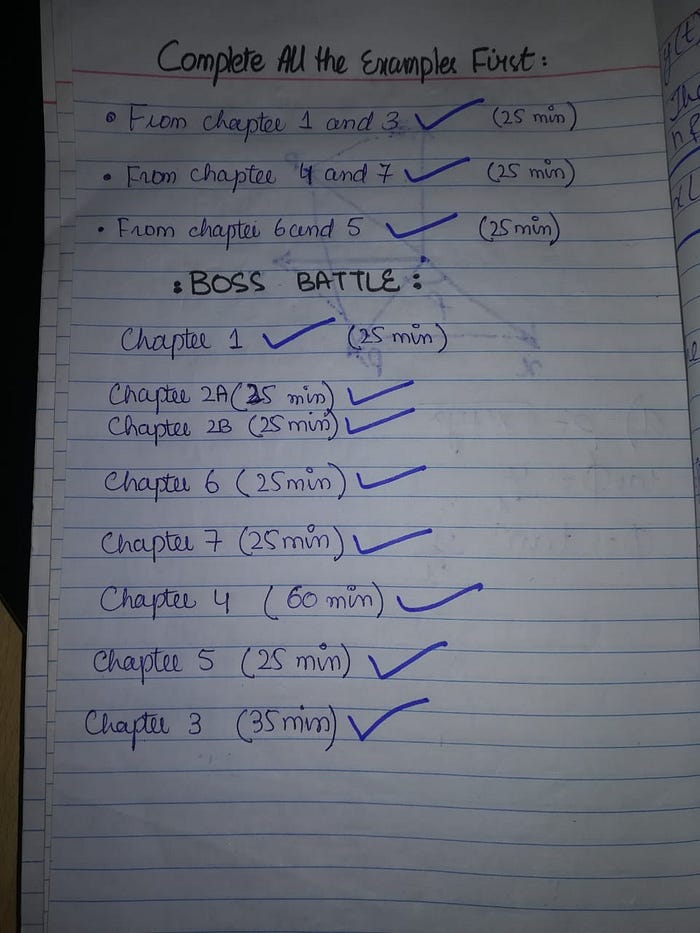 Complete All the Examples First:
• From chapter 1 and 3 ✓ (25 min)
• From chapter 4 and 7 ✓ (25 min)
• From chapter 6 and 5 ✓ (25 min)
: BOSS BATTLE :
Chapter 1 ✓ (25 min)
Chapter 2A (25 min) ✓
Chapter 2B (25 min) ✓
Chapter 6 (25 min) ✓
Chapter 7 (25 min) ✓
Chapter 4 (60 min) ✓
Chapter 5 (25 min) ✓
Chapter 3 (35 min) ✓